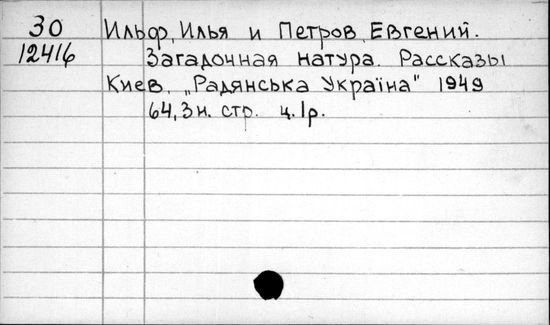 30 Ильф, Илья и Петров, Евгений.
12416 Загадочная натура. Рассказы
Киев, „Радянська Україна" 1949
64,3н. стр. ц.1р.